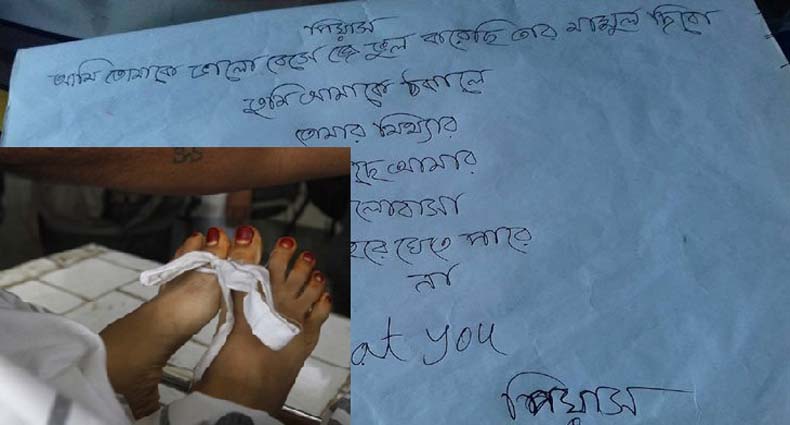 পিয়াস
আমি তোমাকে ভালো বেসে যে ভুল করেছি তার মাসুল দিবো
তুমি আমাকে ঠকালে
তোমার মিথ্যার
আমার
লোবাসা
হেরে যেতে পারে
না
at you
পিয়াস